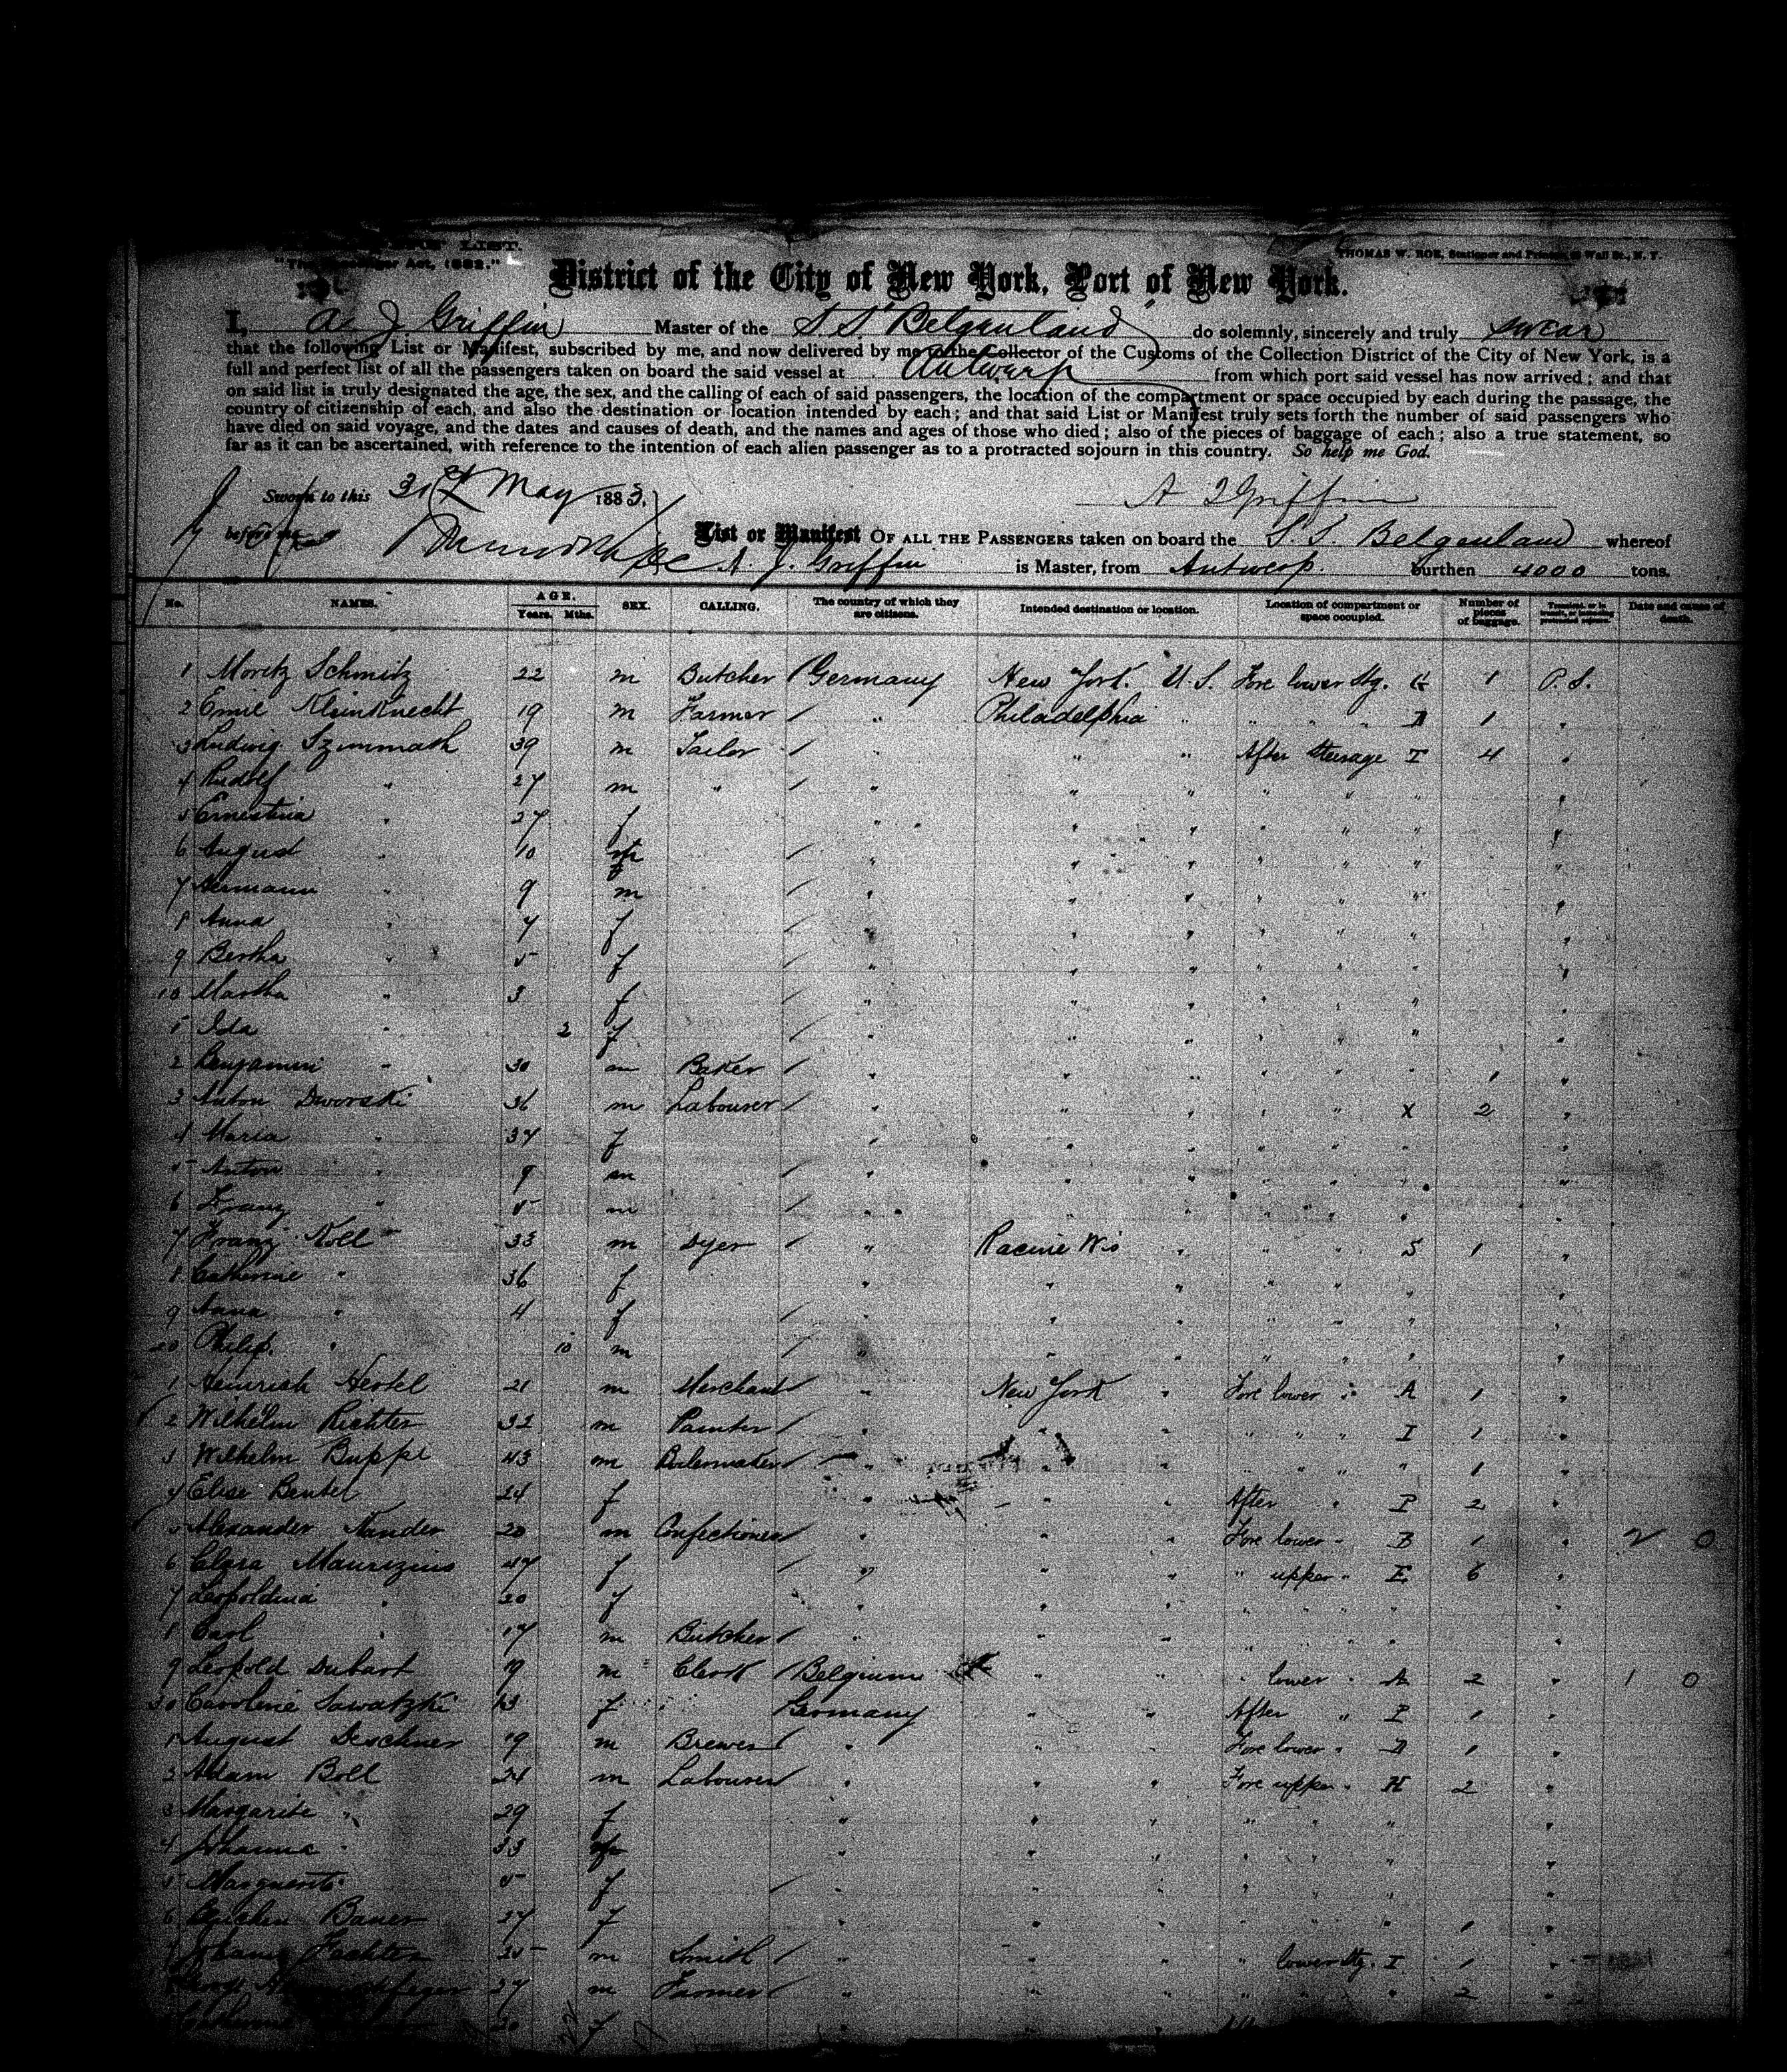 LIST.
"The Passenger Act, 1882."
THOMAS W. ROE, Stationer and Printer, Wall St., N. Y.
District of the City of New York, Port of New York.
I, A. J. Griffin Master of the S S "Belgenland" do solemnly, sincerely and truly swear
that the following List or Manifest, subscribed by me, and now delivered by me to the Collector of the Customs of the Collection District of the City of New York, is a
full and perfect list of all the passengers taken on board the said vessel at Antwerp from which port said vessel has now arrived; and that
on said list is truly designated the age, the sex, and the calling of each of said passengers, the location of the compartment or space occupied by each during the passage, the
country of citizenship of each, and also the destination or location intended by each; and that said List or Manifest truly sets forth the number of said passengers who
have died on said voyage, and the dates and causes of death, and the names and ages of those who died; also of the pieces of baggage of each; also a true statement, so
far as it can be ascertained, with reference to the intention of each alien passenger as to a protracted sojourn in this country. So help me God.
Sworn to this 31st May 1883. A J Griffin
before me
List or Manifest OF ALL THE PASSENGERS taken on board the S. S. Belgenland whereof
A. J. Griffin is Master, from Antwerp. burthen 4000 tons.
No. NAMES. AGE. Years. Mths. SEX. CALLING. The country of which they are citizens. Intended destination or location. Location of compartment or space occupied. Number of pieces of baggage. Date and cause of death.
1 Moritz Schmitz 22 m Butcher Germany New York. U.S. Fore lower Stg. H 1 P. S.
2 Emil Kleinknecht 19 m Farmer " Philadelphia " " " " D 1 "
3 Ludwig Szimmath 39 m Tailor " " " After Steerage I 4 "
4 Rudolf " 27 m " " " " " " " "
5 Ernestina " 27 f " " " " " " "
6 August " 10 " " " " " " "
7 Hermann " 9 m " " " " " " "
8 Anna " 7 f " " " " " " "
9 Bertha " 5 f " " " " " " "
10 Martha " 3 f " " " " " " "
1 Ida " 2 f " " " " " " "
2 Benjamin " 30 m Baker " " " " " " 1 "
3 Anton Dworski 36 m Labourer " " " " " X 2 "
4 Maria " 37 f " " " " " " "
5 Anton " 9 m " " " " " " "
6 Franz " 5 m " " " " " " "
7 Franz Noll 33 m Dyer " Racine Wis " " " S 1 "
8 Catherine " 36 f " " " " " " "
9 Anna " 4 f " " " " " " "
20 Philip. " 10 m " " " " " " "
1 Heinrich Hertel 21 m Merchant " New York " Fore lower " A 1 "
2 Wilhelm Richter 32 m Painter " " " " " " I 1 "
3 Wilhelm Buppe 43 m Boilermaker " " " " " " " 1 "
4 Elise Bentel 24 f " " " After " P 2 "
5 Alexander Nander 20 m Confectioner " " " Fore lower " B 1 " 2 0
6 Clara Maurizius 47 f " " " " upper " E 6 "
7 Leopoldina " 20 f " " " " " " "
8 Carl " 17 m Butcher " " " " " " "
9 Leopold Dubart 19 m Clerk Belgium " " " lower " A 2 " 1 0
30 Caroline Sawatzki f Germany " " After " P 1 "
1 August Deschner 19 m Brewer " " " Fore lower " D 1 "
2 Adam Boll 24 m Labourer " " " Fore upper " H 2 "
3 Margarite " 29 f " " " " " " "
4 Johanna " 33 " " " " " " "
5 " 5 f " " " " " " "
6 Bauer 27 f " " " " " " 1 "
7 25 m Smith " " " " lower Stg. I 1 "
27 m Farmer " " " " " " 2 "